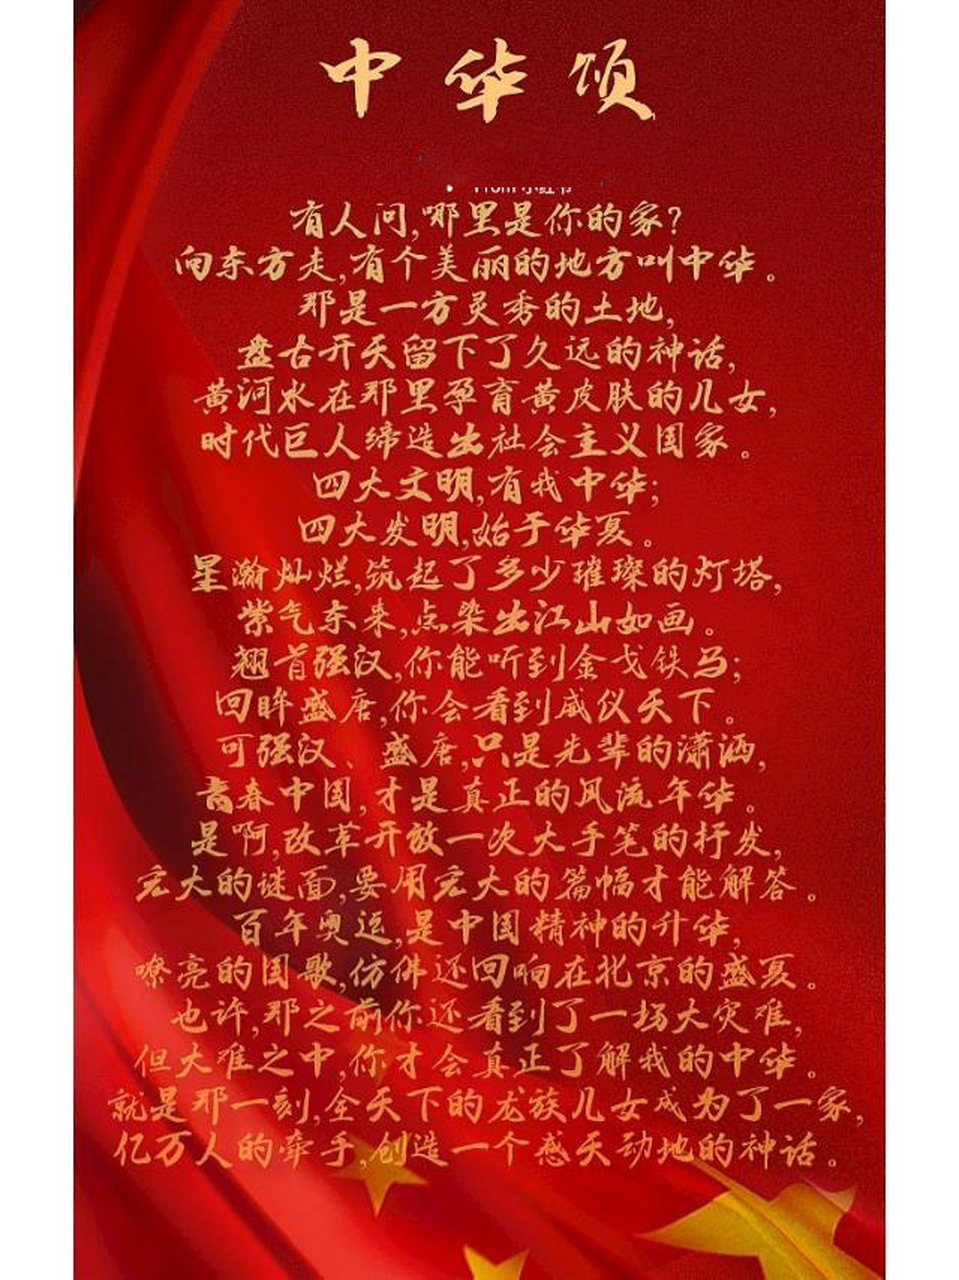 中华颂
有人问,哪里是你的家?
向东方走,有个美丽的地方叫中华。
那是一方灵秀的土地,
盘古开天留下了久远的神话,
黄河水在那里孕育黄皮肤的儿女,
时代巨人缔造出社会主义国家。
四大文明,有我中华;
四大发明,始于华夏。
星瀚灿烂,筑起了多少璀璨的灯塔,
紫气东来,点染出江山如画。
翘首强汉,你能听到金戈铁马;
回眸盛唐,你会看到威仪天下。
可强汉、盛唐,只是先辈的潇洒,
青春中国,才是真正的风流年华。
是啊,改革开放一次大手笔的抒发,
宏大的谜面,要用宏大的篇幅才能解答。
百年奥运,是中国精神的升华,
嘹亮的国歌,仿佛还回响在北京的盛夏。
也许,那之前你还看到了一场大灾难,
但大难之中,你才会真正了解我的中华。
就是那一刻,全天下的龙族儿女成为了一家,
亿万人的牵手,创造一个感天动地的神话。